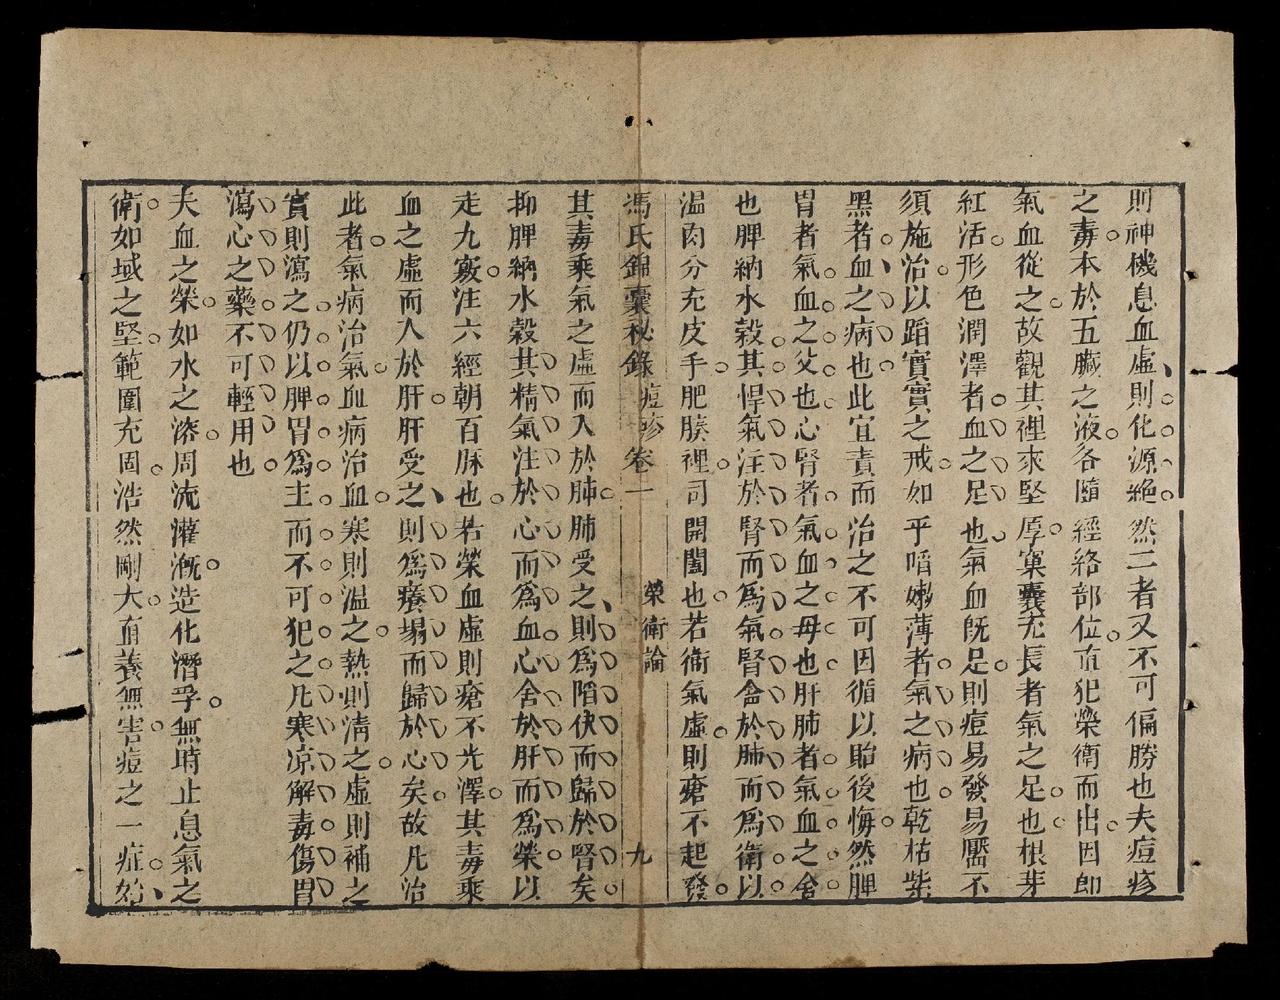 則神機息血虛則化源絕然二者又不可偏勝也夫痘疹
之毒本於五臟之液各隨經絡部位直犯榮衛而出因卽
氣血從之故觀其裡來堅厚窠囊充長者氣之足也根芽
紅活形色潤澤者血之足也氣血旣足則痘易發易靨不
須施治以蹈實實之戒如平㗳嫩薄者氣之病也乾枯紫
黑者血之病也此宜責而治之不可因循以貽後悔然脾
胃者氣血之父也心腎者氣血之母也肝肺者氣血之舍
也脾納水穀其悍氣注於腎而爲氣腎舍於肺而爲衛以
温肉分充皮手肥腠裡司開闔也若衛氣虛則瘡不起發
馮氏錦囊秘錄痘疹卷一 榮衛論 九
其毒乘氣之虛而入於肺肺受之則爲陷伏而歸於腎矣
抑脾納水穀其精氣注於心而爲血心舍於肝而爲榮以
走九竅注六經朝百脉也若榮血虛則瘡不光澤其毒乘
血之虛而入於肝肝受之則爲癢塲而歸於心矣故凡治
此者氣病治氣血病治血寒則温之熱則清之虛則補之
實則瀉之仍以脾胃爲主而不可犯之凡寒凉解毒傷胃
瀉心之藥不可輕用也
夫血之榮如水之滲周流灌漑造化潛孚無時止息氣之
衛如域之堅範圍充固浩然剛大有養無害痘之一症始